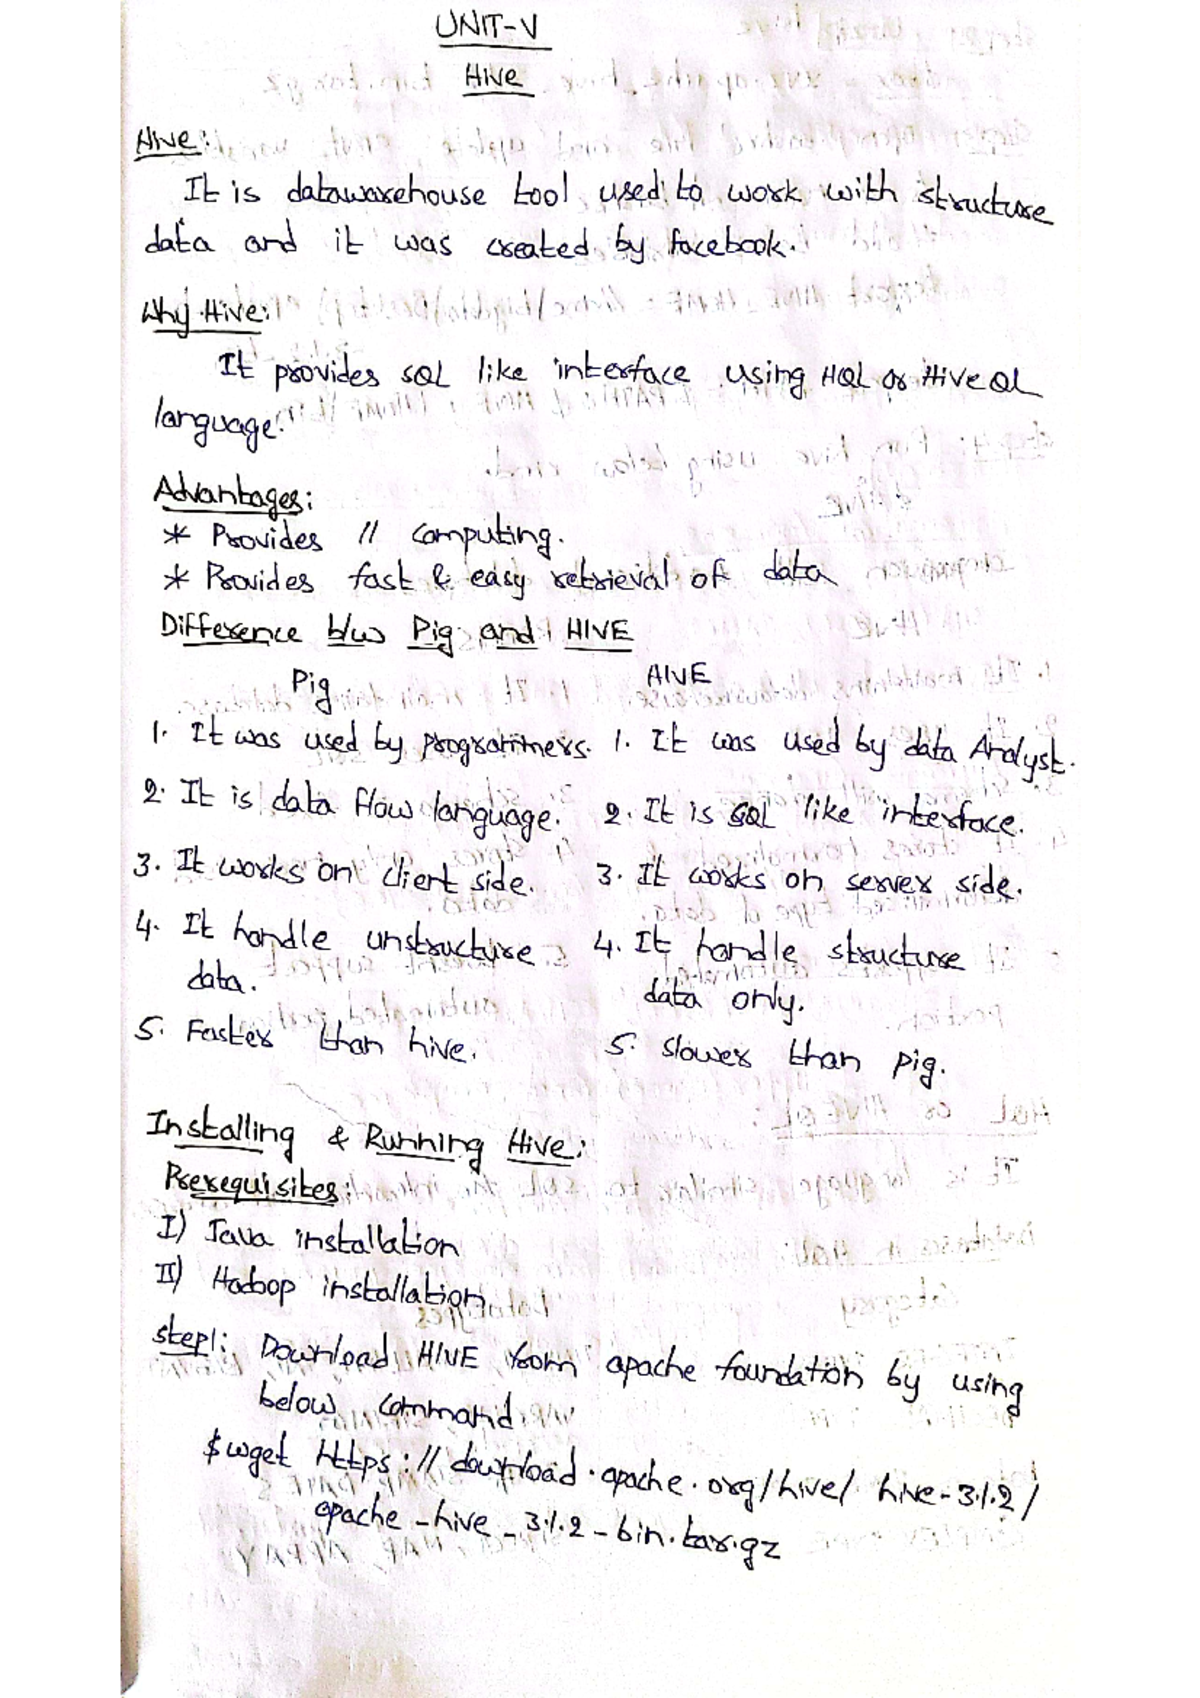 UNIT-V
Hive
Hive:
It is datawarehouse tool used to work with structure
data and it was created by facebook.
Why Hive:
It provides SQL like interface using HQL or HiveQL
language.
Advantages:
* Provides // computing.
* Provides fast & easy retrieval of data
Difference b/w Pig and HIVE
Pig HIVE
1. It was used by programmers. 1. It was used by data Analyst.
2. It is data flow language. 2. It is SQL like interface.
3. It works on client side. 3. It works on server side.
4. It handle unstructure 4. It handle structure
data. data only.
5. Faster than hive. 5. Slower than pig.
Installing & Running Hive:
Prerequisites:
I) Java installation
II) Hadoop installation
step1: Download HIVE from apache foundation by using
below command
$ wget https://download.apache.org/hive/ hive-3.1.2/
apache-hive-3.1.2-bin.tar.gz